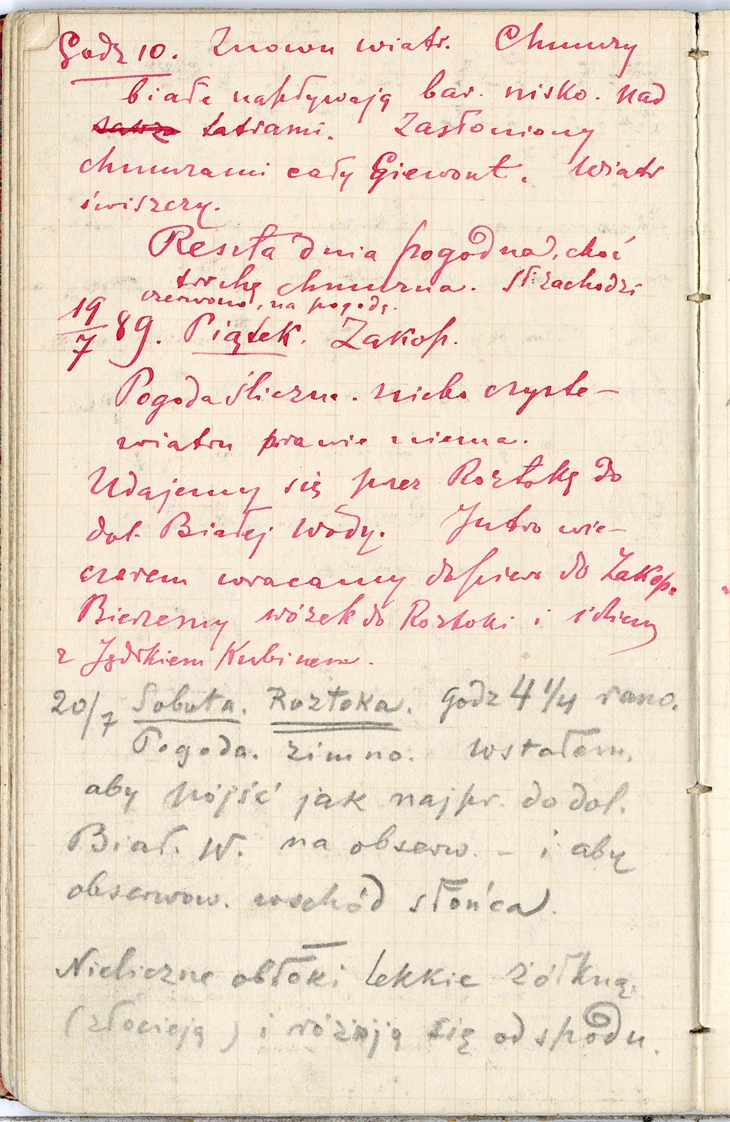 Godz 10. Znowu wiatr. Chmury
białe napływają bar. nisko. nad
Tatrami. Zasłoniony
chmurami cały Giewont. Wiatr
świszczy.
Reszta dnia pogodna, choć
trochę chmurna. Sł. zachodzi
czerwono, na pogodę.
19/7 89. Piątek. Zakop.
Pogoda śliczna. niebo czyste –
wiatru prawie niema.
Udajemy się przez Roztokę do
dol. Białej Wody. Jutro wie-
czorem wracamy dopiero do Zakop.
Bierzemy wózek do Roztoki i idziemy
z Jędrkiem Kubinem.
20/7 Sobota. Roztoka. Godz 4 1/4 rano.
Pogoda. zimno. Wstałem,
aby pójść jak najpr. do dol.
Biał. W. na obserw. – i aby
obserwow. wschód słońca.
Nieliczne obłoki lekkie żółkną
(złocieją) i różują się od spodu.